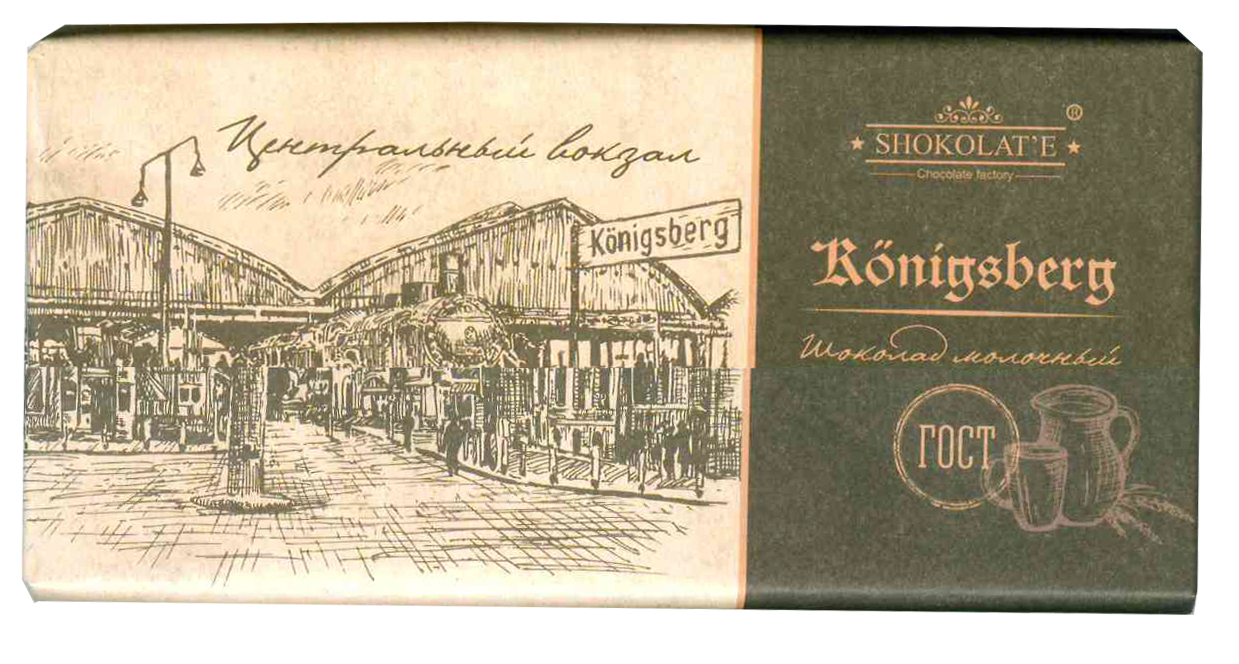 Центральный вокзал
Königsberg
®
SHOKOLAT'E
Chocolate factory
Königsberg
Шоколад молочный
ГОСТ